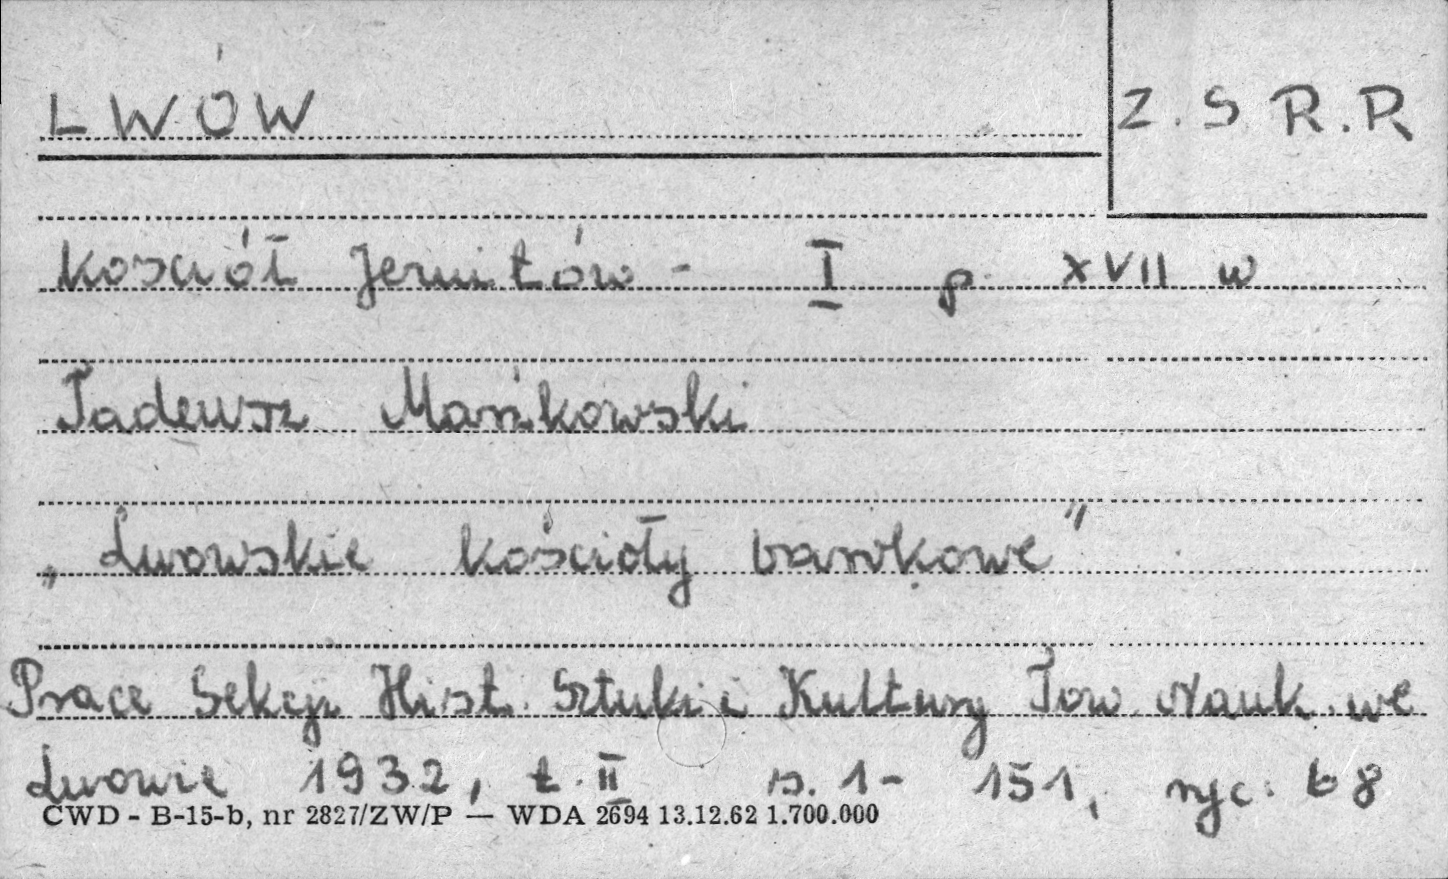 LWÓW
Z.S.R.R
Kościół Jezuitów - I p. XVII w
Tadeusz Mańkowski
„Lwowskie kościoły barokowe”
Prace Sekcji Hist. Sztuki i Kultury Tow. Nauk. we
Lwowie 1932, t. II s. 1-151, ryc. 68
CWD - B-15-b, nr 2827/ZW/P — WDA 2694 13.12.62 1.700.000